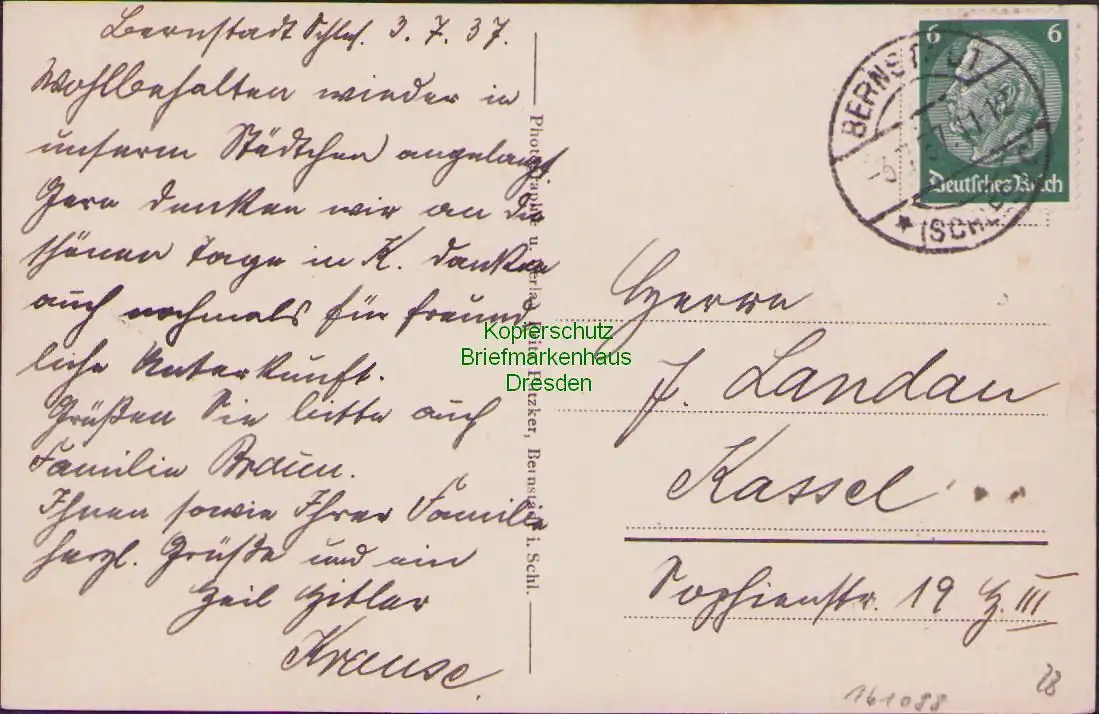 Bernstadt Schles. 3. 7. 37.
Wohlbehalten wieder in
unserm Städtchen angelangt
Gern denken wir an die
schönen Tage in K. danken
auch nochmals für freund
liche Unterkunft.
Grüßen Sie bitte auch
Familie Braun.
Ihnen sowie Ihrer Familie
herzl. Grüße und ein
Heil Hitler
Krause.
Photographie u. Verlag Fritz Pätzker, Bernstadt i. Schl.
6 6
Deutsches Reich
BERNSTADT
(SCHLES)
Kopierschutz
Briefmarkenhaus
Dresden
Herrn
J. Landau
Kassel
Sophienstr. 19 H. III
161088